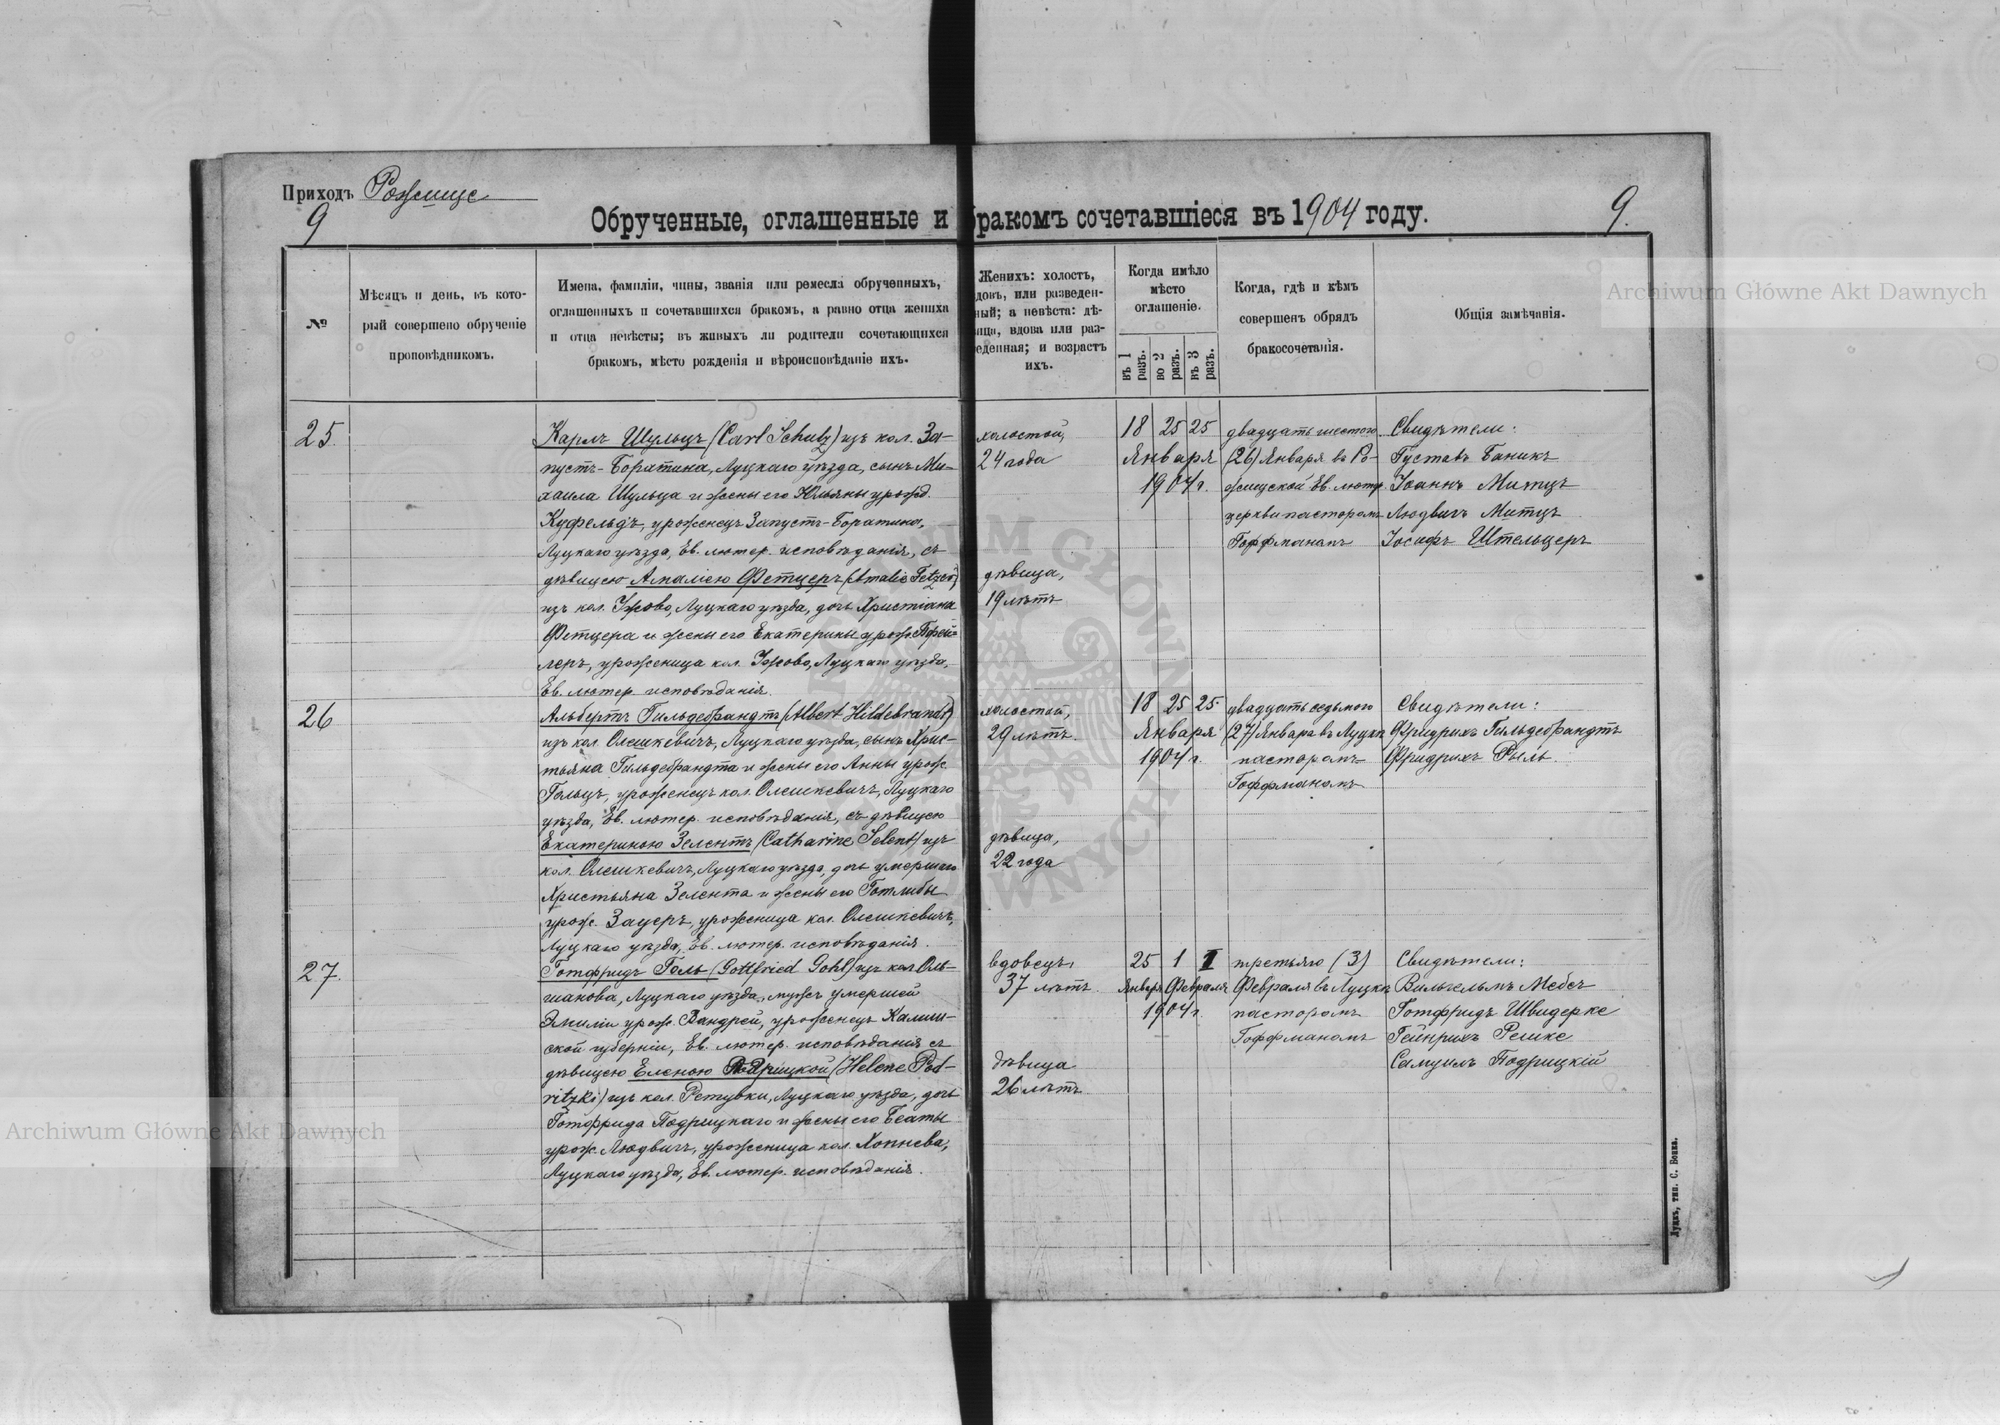 Приходъ Рожище
9
9.
Обрученные, оглашенные и бракомъ сочетавшіеся въ 1904 году.
№
Мѣсяцъ и день, въ кото-
рый совершено обрученіе
проповѣдникомъ.
Имена, фамиліи, чины, званія или ремесла обрученныхъ,
оглашенныхъ и сочетавшихся бракомъ, а равно отца жениха
и отца невѣсты; въ живыхъ ли родители сочетающихся
бракомъ, мѣсто рожденія и вѣроисповѣданіе ихъ.
Женихъ: холостъ,
довъ, или разведен-
ный; а невѣста: дѣ-
ица, вдова или раз-
еденная; и возрастъ
ихъ.
Когда имѣло
мѣсто
оглашеніе.
въ 1 разъ.
во 2 разъ.
въ 3 разъ.
Когда, гдѣ и кѣмъ
совершенъ обрядъ
бракосочетанія.
Общія замѣчанія.
25.
Карлъ Шульцъ (Carl Schulz) изъ кол. За-
пустъ-Боратина, Луцкаго уѣзда, сынъ Ми-
хаила Шульца и жены его Юльяны урожд.
Куфельдъ, уроженецъ Запустъ-Боратина,
Луцкаго уѣзда, Ев. лютер. исповѣданія, съ
дѣвицею Амаліею Фетцеръ (Amalie Fetzer)
изъ кол. Ужово, Луцкаго уѣзда, дочь Христіана
Фетцера и жены его Екатерины урож. Пфей-
леръ, уроженица кол. Ужово, Луцкаго уѣзда,
Ев. лютер. исповѣданія.
холостой,
24 года
дѣвица,
19 лѣтъ
18 25 25
Января
1904 г.
двадцать шестого
(26) Января въ Ро-
жищской Ев. лютер.
церкви пасторомъ
Гоффманомъ
Свидѣтели:
Густавъ Баникъ
Іоаннъ Митцъ
Людвигъ Митцъ
Іосифъ Штельцеръ
26
Альбертъ Гильдебрандтъ (Albert Hildebrandt)
изъ кол. Олешкевичъ, Луцкаго уѣзда, сынъ Хрис-
тьяна Гильдебрандта и жены его Анны урож.
Гольцъ, уроженецъ кол. Олешкевичъ, Луцкаго
уѣзда, Ев. лютер. исповѣданія, съ дѣвицею
Екатериною Зелентъ (Catharine Selent) изъ
кол. Олешкевичъ, Луцкаго уѣзда, дочь умершаго
Христьяна Зелента и жены его Готлибы
урож. Зауеръ, уроженица кол. Олешкевичъ,
Луцкаго уѣзда, Ев. лютер. исповѣданія.
холостой,
29 лѣтъ
дѣвица,
22 года
18 25 25
Января
1904 г.
двадцать седьмого
(27) Января въ Луцкѣ
пасторомъ
Гоффманомъ
Свидѣтели:
Фридрихъ Гильдебрандтъ
Фридрихъ Рыль.
27.
Готфридъ Голь (Gottfried Gohl) изъ кол. Оль-
шанова, Луцкаго уѣзда, мужъ умершей
Эмиліи урож. Вандрей, уроженецъ Калиш-
ской губерніи, Ев. лютер. исповѣданія съ
дѣвицею Еленою Подрицкой (Helene Pod-
ritzki) изъ кол. Ретувки, Луцкаго уѣзда, дочь
Готфрида Подрицкаго и жены его Беаты
урож. Людвигъ, уроженица кол. Копнева,
Луцкаго уѣзда, Ев. лютер. исповѣданія.
вдовецъ,
37 лѣтъ
дѣвица
26 лѣтъ
25 1 1
Января Февраля
1904 г.
третьяго (3)
Февраля въ Луцкѣ
пасторомъ
Гоффманомъ
Свидѣтели:
Вильгельмъ Мебсъ
Готфридъ Швидерке
Гейнрихъ Решке
Самуилъ Подрицкій
Луцкъ, тип. С. Бонка.
Archiwum Główne Akt Dawnych
Archiwum Główne Akt Dawnych